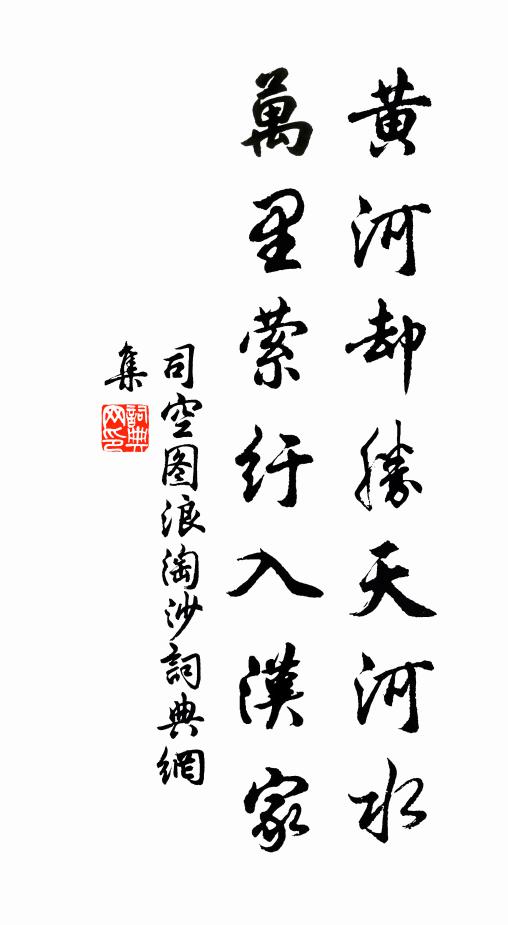 黄河却勝天河水
萬里縈紆入漢家
司空图浪淘沙詞典網
集
詞典网印